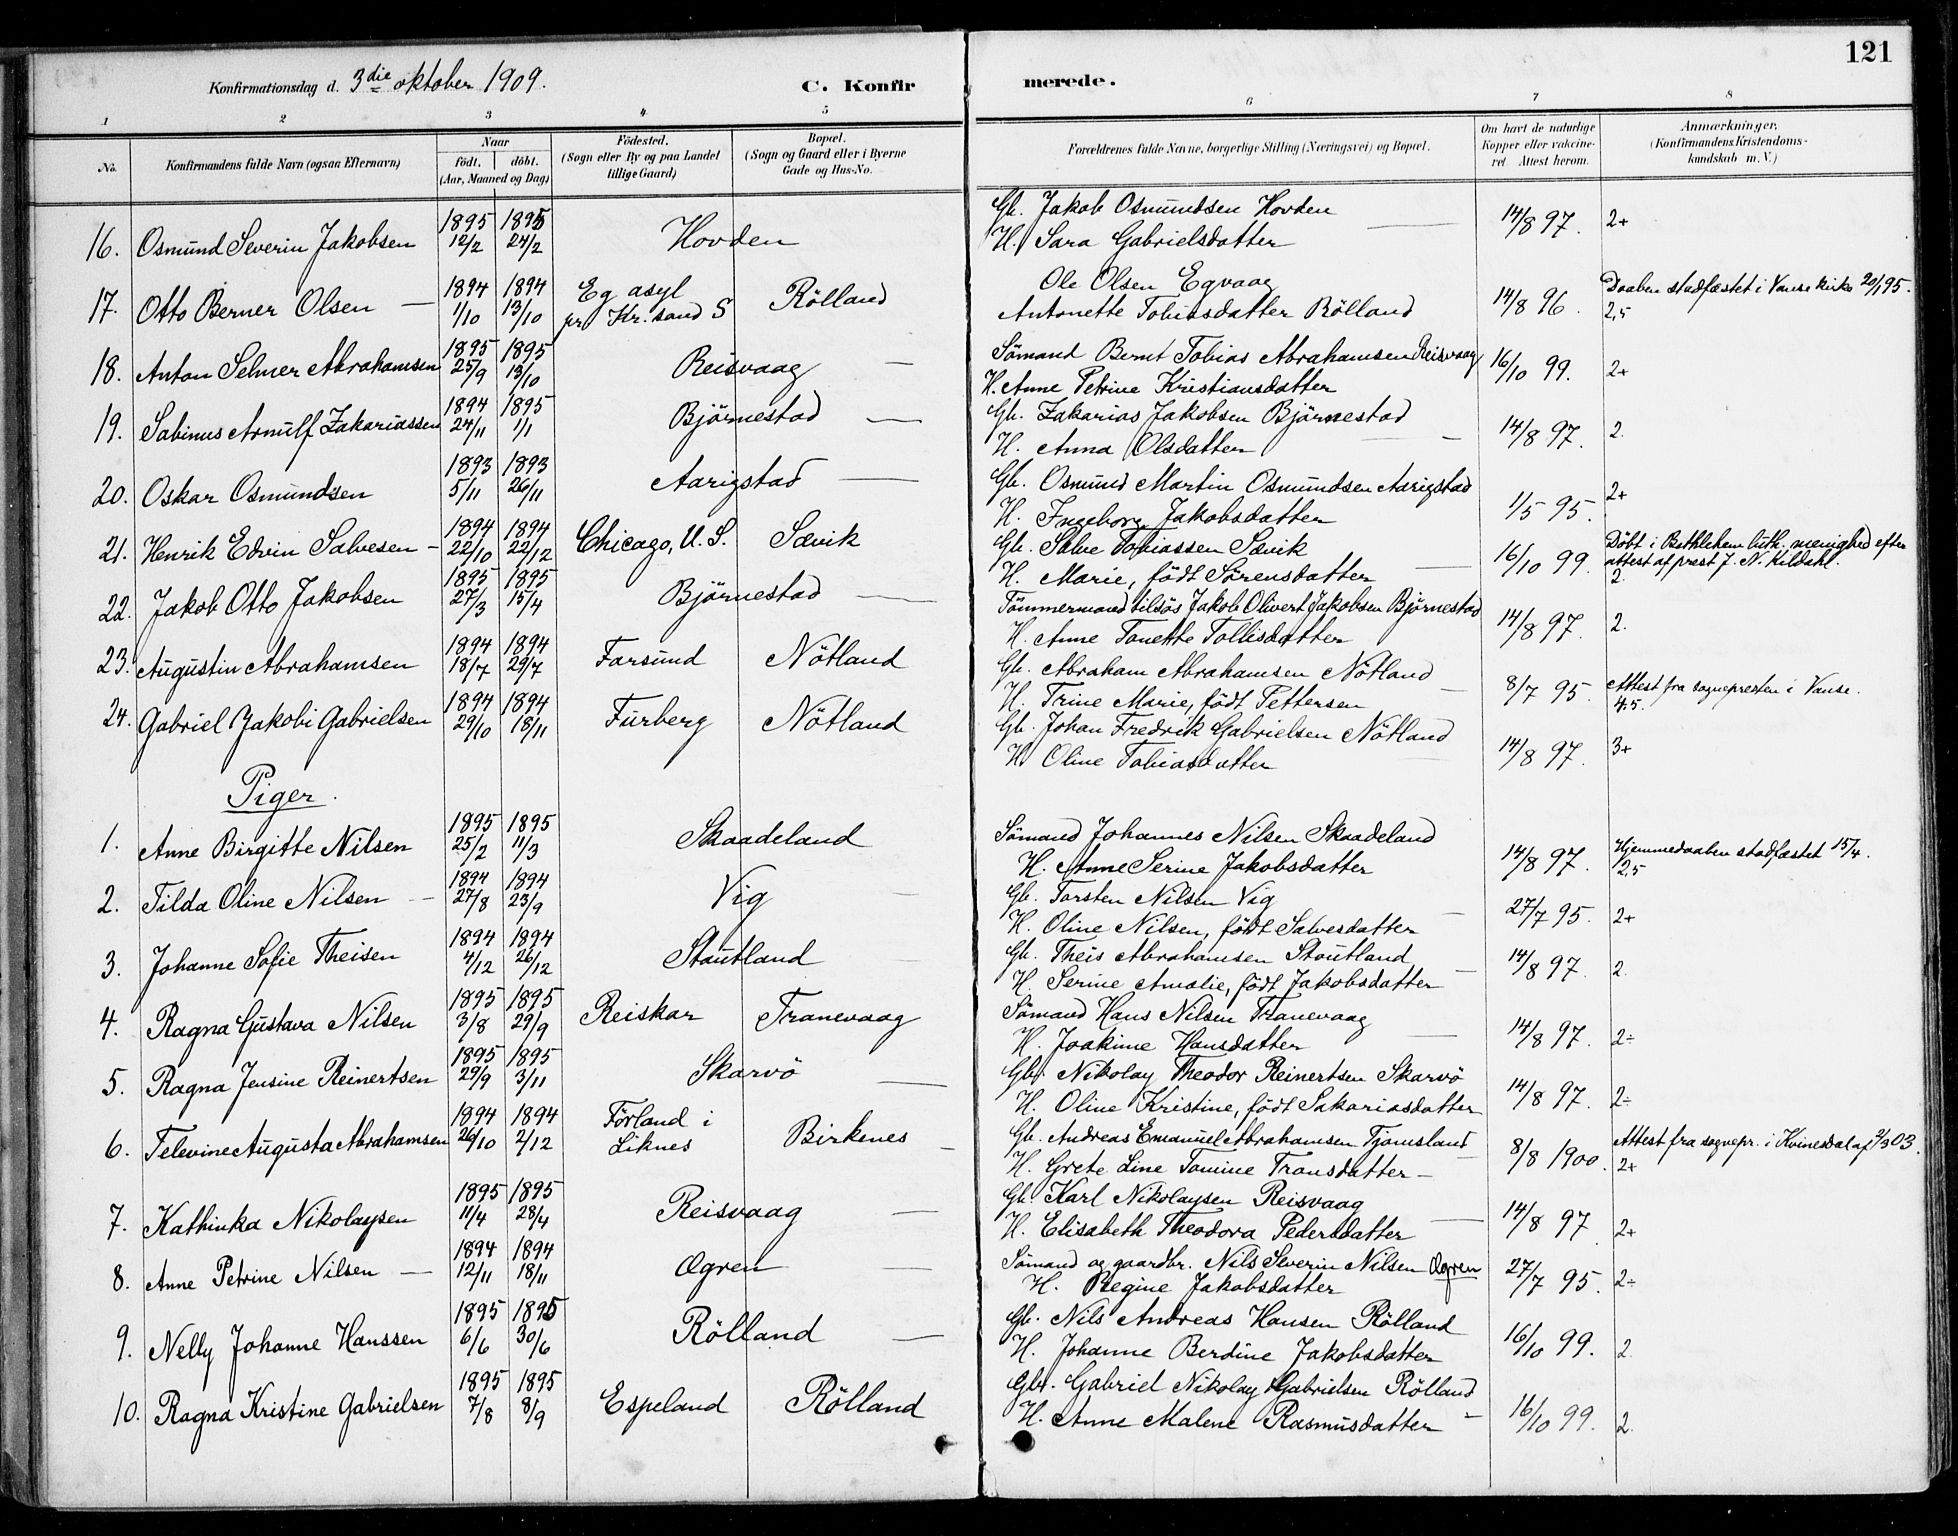 121
Konfirmationsdag d. 3die oktober 1909. C. Konfirmerede.
1 2 3 4 5 6 7 8
No. Konfirmandens fulde Navn (ogsaa Efternavn) Naar födt. döbt. (Aar, Maaned og Dag) Födested. (Sogn eller By og paa Landet tillige Gaard) Bopæl. (Sogn og Gaard eller i Byerne Gade og Hus-No. Forældrenes fulde Navne, borgerlige Stilling (Næringsvei) og Bopæl. Om havt de naturlige Kopper eller vakcineret. Attest herom. Anmærkninger, (Konfirmandens Kristendomskundskab m. V.)
1895 1895 Gb. Jakob Osmundsen Hovden
16. Osmund Severin Jakobsen 12/2 24/2 Hovden H. Sara Gabrielsdatter 14/8 97. 2+
1894 1894 Eg asyl Ole Olsen Egvaag Daaben stadfæstet i Vanse kirke 20/1 95.
17. Otto Berner Olsen 1/10 13/10 pr Kr.sand S Rölland Antonette Tobiasdatter Rölland 14/8 96. 2,5
1895 1895 Sömand Bernt Tobias Abrahamsen Reisvaag
18. Anton Selmer Abrahamsen 25/9 13/10 Reisvaag H. Anne Petrine Kristiansdatter 16/10 99. 2+
1894 1895 Gb. Zakarias Jakobsen Björnestad
19. Sabinus Arnulf Zakariassen 24/11 1/1 Björnestad H. Anna Olsdatter 14/8 97. 2.
1893 1893 Gb. Osmund Martin Osmundsen Aarigstad
20. Oskar Osmundsen 5/11 26/11 Aarigstad H. Ingeborg Jakobsdatter 1/5 95. 2+
1894 1894 Gb. Salve Tobiassen Sævik Döbt i Bethlehem luth. menighed efter
21. Henrik Edvin Salvesen 22/10 22/12 Chicago, U. S. Sævik H. Marie, födt Sörensdatter 16/10 99. attest af prest J. N. Kildahl. 2.
1895 1895 Tömmermand tilsös Jakob Olivert Jakobsen Björnestad
22. Jakob Otto Jakobsen 27/3 15/4 Björnestad H. Anne Tonette Tollisdatter 14/8 97. 2.
1894 1894 Gb. Abraham Abrahamsen Nötland
23. Augustin Abrahamsen 18/7 29/7 Farsund Nötland H. Trine Marie, födt Pettersen 8/7 95. Attest fra sognepresten i Vanse. 4.5.
1894 1894 Gb. Johan Fredrik Gabrielsen Nötland
24. Gabriel Jakobi Gabrielsen 29/10 18/11 Furberg Nötland H. Oline Tobiasdatter 14/8 97. 3+
Piger.
1895 1895 Sömand Johannes Nilsen Skaadeland
1. Anne Birgitte Nilsen 25/2 11/3 Skaadeland H. Anne Serine Jakobsdatter 14/8 97. Hjemmedaaben stadfæstet 15/4. 2,5
1894 1894 Gb. Torsten Nilsen Vig
2. Tilda Oline Nilsen 27/8 23/9 Vig H. Oline Nilsen, födt Salvesdatter 27/7 95. 2+
1894 1894 Gb. Theis Abrahamsen Stoutland
3. Johanne Sofie Theisen 4/12 26/12 Stoutland H. Serine Amalie, födt Jakobsdatter 14/8 97. 2.
1895 1895 Sömand Hans Nilsen Tranevaag
4. Ragna Gustava Nilsen 3/8 29/9 Reiskar Tranevaag H. Joakime Hansdatter 14/8 97. 2÷
1895 1895 Gbr. Nikolay Theodor Reinertsen Skarvö
5. Ragna Jensine Reinertsen 29/9 3/11 Skarvö H. Oline Kristine, födt Sakariasdatter 14/8 97. 2÷
1894 1894 Förland i Gb. Andreas Emanuel Abrahamsen Tjomsland Attest fra sognepr. i Kvinesdal af 2/3 03.
6. Televine Augusta Abrahamsen 26/10 2/12 Liknes Birkenes H. Grete Line Tomine Transdatter 8/8 1900. 2+
1895 1895 Gb. Karl Nikolaysen Reisvaag
7. Kathinka Nikolaysen 11/4 28/4 Reisvaag H. Elisabeth Theodora Pedersdatter 14/8 97 2+
1894 1894 Sömand og gaardbr. Nils Severin Nilsen Øgren
8. Anne Petrine Nilsen 12/11 18/11 Øgren H. Regine Jakobsdatter 27/7 95. 2÷
1895 1895 Gb. Nils Andreas Hansen Rölland
9. Nelly Johanne Hanssen 6/6 30/6 Rölland H. Johanne Berdine Jakobsdatter 16/10 99. 2.
1895 1895 Gbr. Gabriel Nikolay Gabrielsen Rölland
10. Ragna Kristine Gabrielsen 7/8 8/9 Espeland Rölland H. Anne Malene Rasmusdatter 16/10 99. 2.